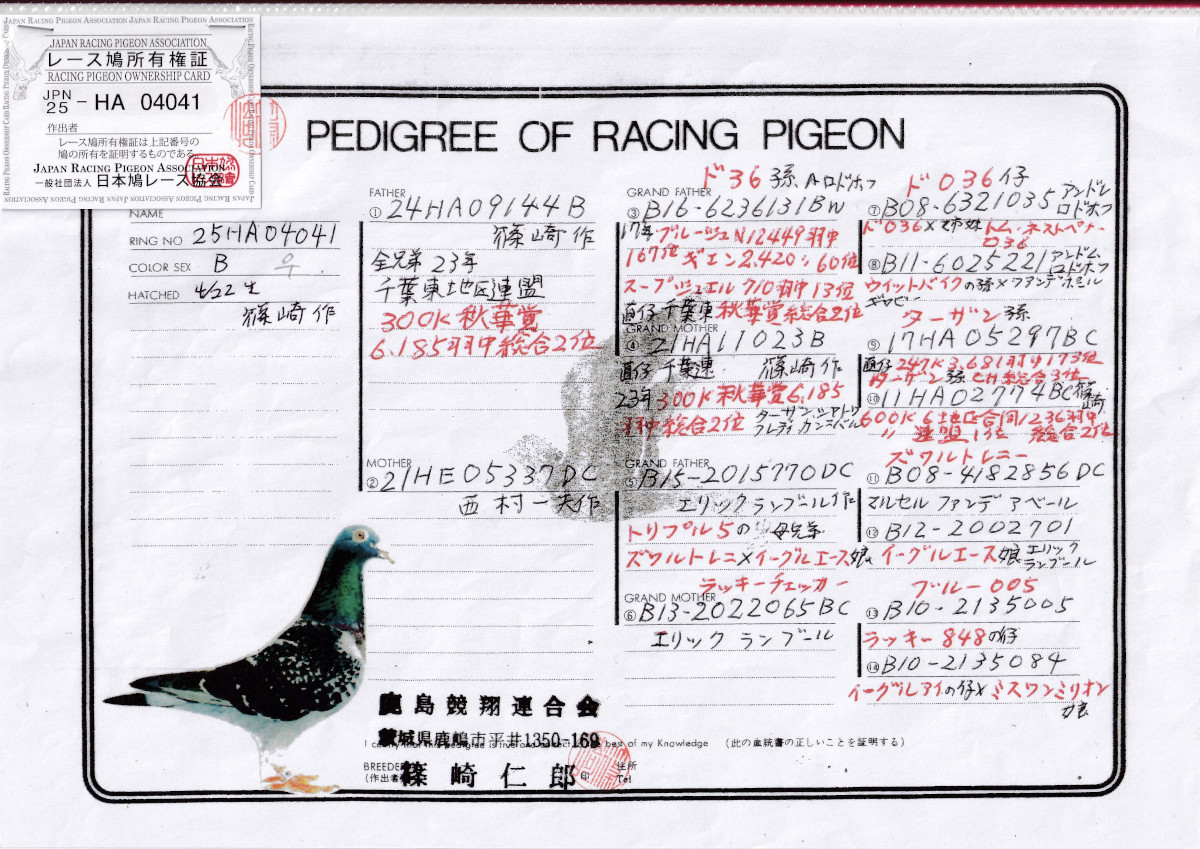 JAPAN RACING PIGEON ASSOCIATION JAPAN RACING PIGEON ASSOCIATION
JAPAN RACING PIGEON ASSOCIATION
レース鳩所有権証
RACING PIGEON OWNERSHIP CARD
JPN 25 - HA 04041
作出者
レース鳩所有権証は上記番号の
鳩の所有を証明するものである。
JAPAN RACING PIGEON ASSOCIATION
一般社団法人 日本鳩レース協会
PEDIGREE OF RACING PIGEON
NAME
RING NO 25HA04041
COLOR SEX B ♀
HATCHED 4/22生
篠崎作
FATHER
① 24HA09144B
篠崎作
全兄弟 23年
千葉東地区連盟
300K秋華賞
6.185羽中総合2位
MOTHER
② 21HE05337DC
西村一夫作
ド36 孫 Aロドホフ
GRAND FATHER
③ B16-6236131BW
17年ブルージュN12449羽中
167位 ギエン2,420〃60位
スープジュエル710羽中13位
直仔 千葉東 秋華賞総合2位
GRAND MOTHER
④ 21HA11023B
直仔 千葉連 篠崎作
23年300K秋華賞6.185
羽中総合2位
GRAND FATHER
⑤ B15-2015770DC
エリックランブール作
トリプル5の 母兄弟
ズワルトレニ×イーグルエース娘
ラッキーチェッカー
GRAND MOTHER
⑥ B13-2022065BC
エリック ランブール
ド036仔
⑦ B08-6321035 アンドレ ロドホフ
ド036×姉妹 トム・ネストペナー 036
⑧ B11-6025221 アンドム、ロドホフ
ウイットバイクの孫×ファンデ
ターザン孫
⑨ 17HA05297BC
直仔 247K3,681羽中173位
ターザン 孫 CH総合3位
⑩ 11HA02774BC 篠崎
600K6地区合同1236羽中
〃 連盟1位 総合2位
ズワルトレニー
⑪ B08-4182856DC
マルセル ファンデ アベール
⑫ B12-2002701
イーグルエース娘 エリック ランブール
ブルー005
⑬ B10-2135005
ラッキー848の仔
⑭ B10-2135084
イーグルアイの仔×ミスワンミリオン
娘
鹿島競翔連合会
茨城県鹿嶋市平井1350-169
best of my Knowledge (此の血統書の正しいことを証明する)
BREEDER
(作出者) 篠崎仁郎 印
住所
Tel